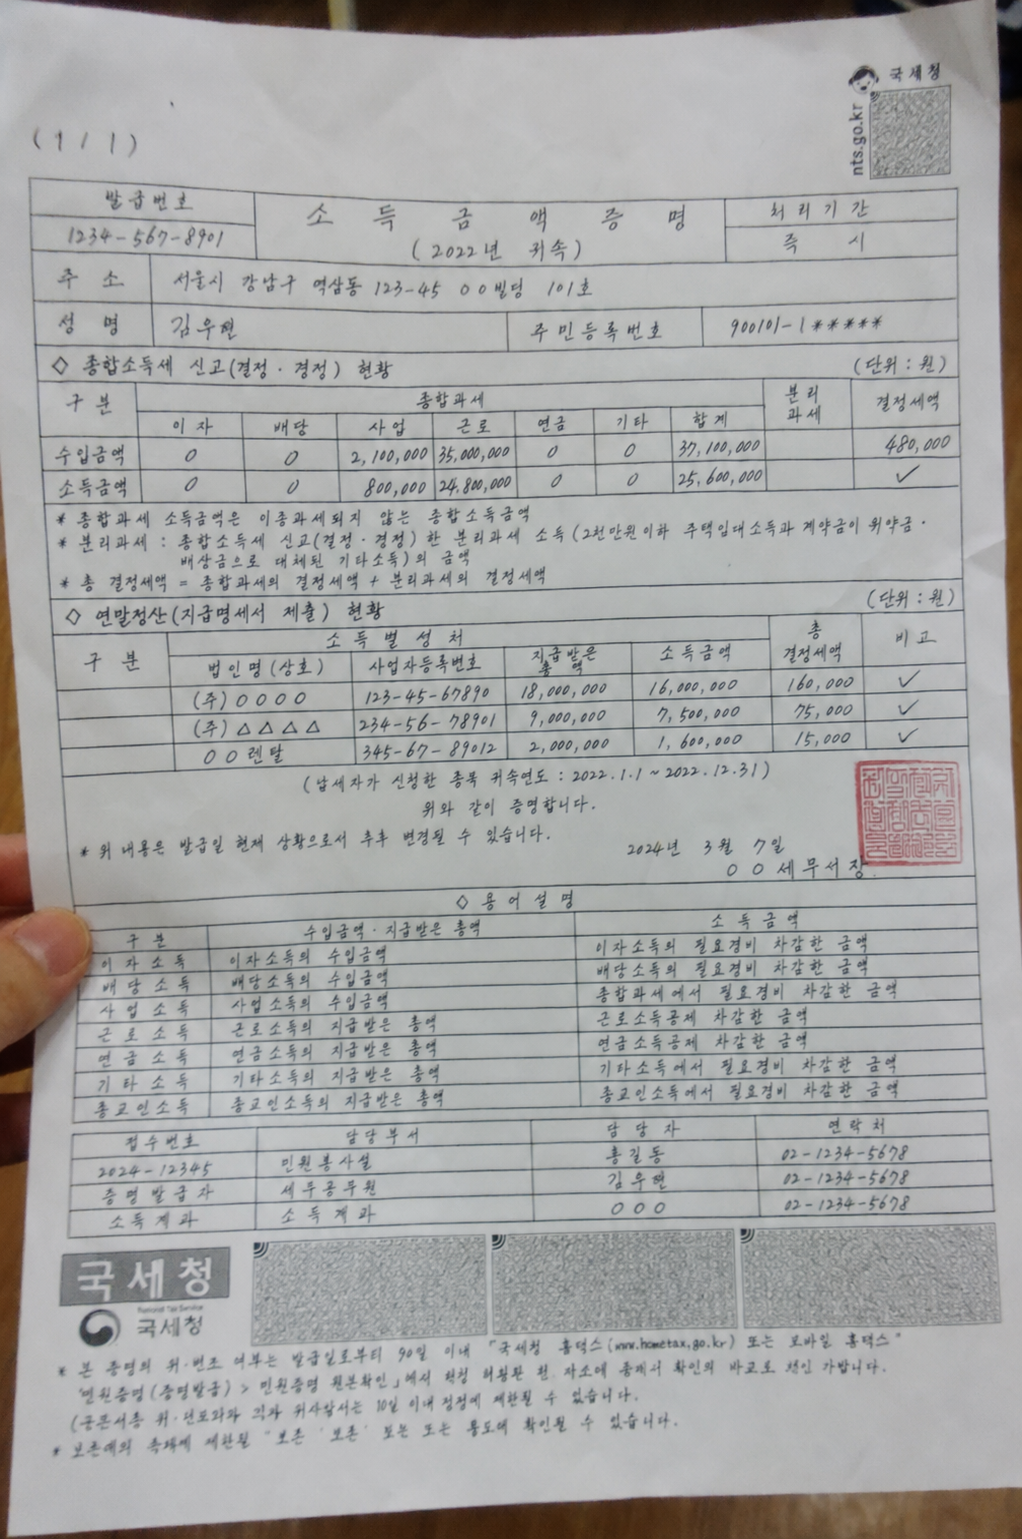 국세청
nts.go.kr
(1/1)
발급번호
1234-567-8901
소 득 금 액 증 명
(2022년 귀속)
처리기간
즉 시
주 소 서울시 강남구 역삼동 123-45 00빌딩 101호
성 명 김우현 주민등록번호 900101-1*****
◇ 종합소득세 신고(결정·경정) 현황 (단위:원)
구 분 종합과세 분리과세 결정세액
이자 배당 사업 근로 연금 기타 합계
수입금액 0 0 2,100,000 35,000,000 0 0 37,100,000 480,000
소득금액 0 0 800,000 24,800,000 0 0 25,600,000 ✓
* 종합과세 소득금액은 이중과세되지 않는 종합소득금액
* 분리과세 : 종합소득세 신고(결정·경정)한 분리과세 소득(2천만원이하 주택임대소득과 계약금이 위약금·
배상금으로 대체된 기타소득)의 금액
* 총 결정세액 = 종합과세의 결정세액 + 분리과세의 결정세액
◇ 연말정산(지급명세서 제출) 현황 (단위:원)
구 분 소 득 별 성 처 총 결정세액 비고
법인명(상호) 사업자등록번호 지급받은 총액 소득금액
(주)0000 123-45-67890 18,000,000 16,000,000 160,000 ✓
(주)△△△△ 234-56-78901 9,000,000 7,500,000 75,000 ✓
00렌탈 345-67-89012 2,000,000 1,600,000 15,000 ✓
(납세자가 신청한 종목 귀속연도 : 2022.1.1 ~ 2022.12.31)
위와 같이 증명합니다.
* 위 내용은 발급일 현재 상황으로서 추후 변경될 수 있습니다.
2024년 3월 7일
00세무서장
◇ 용어설명
구 분 수입금액·지급받은 총액 소득금액
이자소득 이자소득의 수입금액 이자소득의 필요경비 차감한 금액
배당소득 배당소득의 수입금액 배당소득의 필요경비 차감한 금액
사업소득 사업소득의 수입금액 종합과세에서 필요경비 차감한 금액
근로소득 근로소득의 지급받은 총액 근로소득공제 차감한 금액
연금소득 연금소득의 지급받은 총액 연금소득공제 차감한 금액
기타소득 기타소득의 지급받은 총액 기타소득에서 필요경비 차감한 금액
종교인소득 종교인소득의 지급받은 총액 종교인소득에서 필요경비 차감한 금액
접수번호 담당부서 담당자 연락처
2024-12345 민원봉사실 홍길동 02-1234-5678
증명발급자 세무공무원 김우현 02-1234-5678
소득계과 소득계과 000 02-1234-5678
국세청
National Tax Service
국세청
* 본 증명의 위·변조 여부는 발급일로부터 90일 이내 「국세청 홈택스(www.hometax.go.kr) 또는 모바일 홈택스"
"민원증명(증명발급) > 민원증명 원본확인」에서
10일 이내 제한될 수 있습니다.
확인될 수 있습니다.